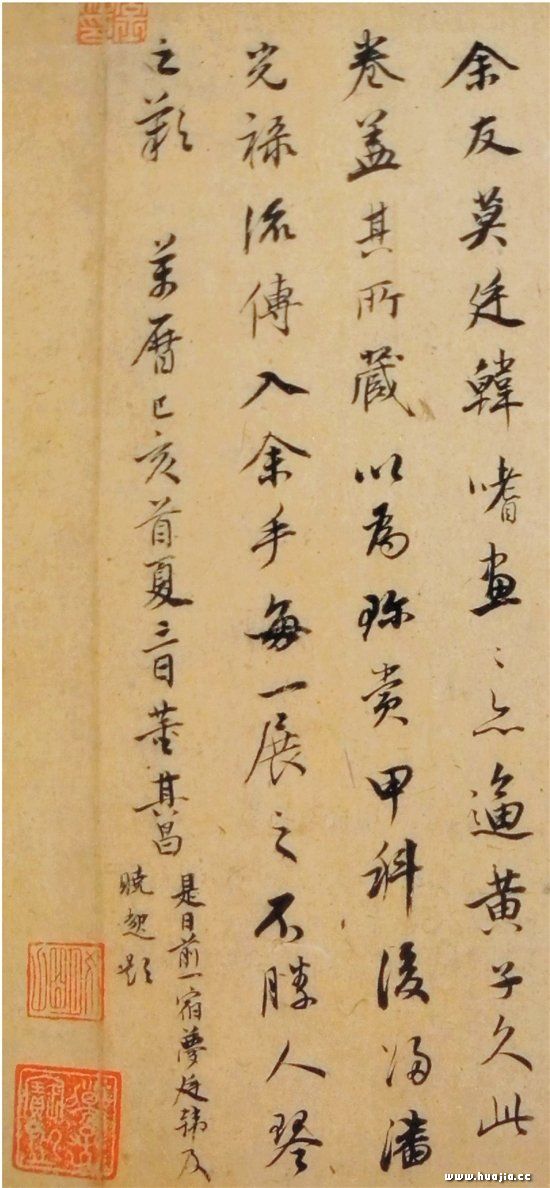 余友莫廷韓嗜畫〻亦逼黄子久此
卷蓋其所藏以為珎賞甲科後歸潘
光祿流傳入余手每一展之不勝人琴
之歎 萬曆己亥首夏三日董其昌
是日前一宿夢廷韓及
曉起題
www.huajia.cc